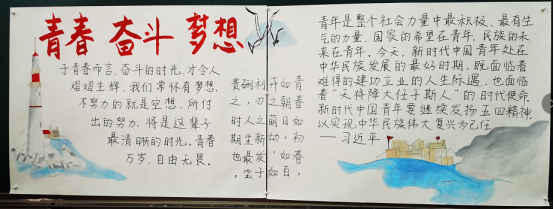 青春 奋斗 梦想
于青春而言,奋斗的时光,才令人
熠熠生辉,我们常怀有梦想,
不努力的就是空想,所付
出的努力,将是这辈子
最清晰的时光。青春
万岁,自由无畏。
青春如初春,
如朝日,如百
卉之萌动,如
利刃之新发于
硎,人生最宝
贵之时期也。
青年是整个社会力量中最积极、最有生
气的力量,国家的希望在青年,民族的未
来在青年。今天,新时代中国青年处在
中华民族发展的最好时期,既面临着
难得的建功立业的人生际遇,也面临
着“天将降大任于斯人”的时代使命。
新时代中国青年要继续发扬五四精神
以实现中华民族伟大复兴为己任
——习近平